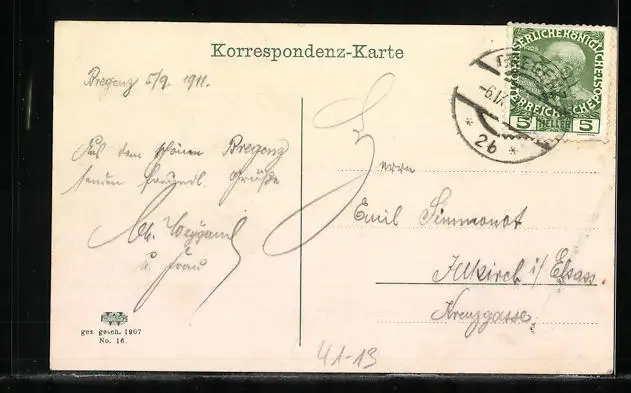 Korrespondenz-Karte
Bregenz 5/9. 1911.
Aus dem schönen Bregenz
senden freundl. Grüße
Weygand
u. Frau
Herrn
Emil Simmonot
Illkirch i/ Elsass
Kreuzgasse
ges. gesch. 1907
No. 16.
41-13
KAISERLICHE KÖNIGLICHE
ÖSTERREICHISCHE
5 HELLER 5
BREGENZ
-6.IX
* 2b *